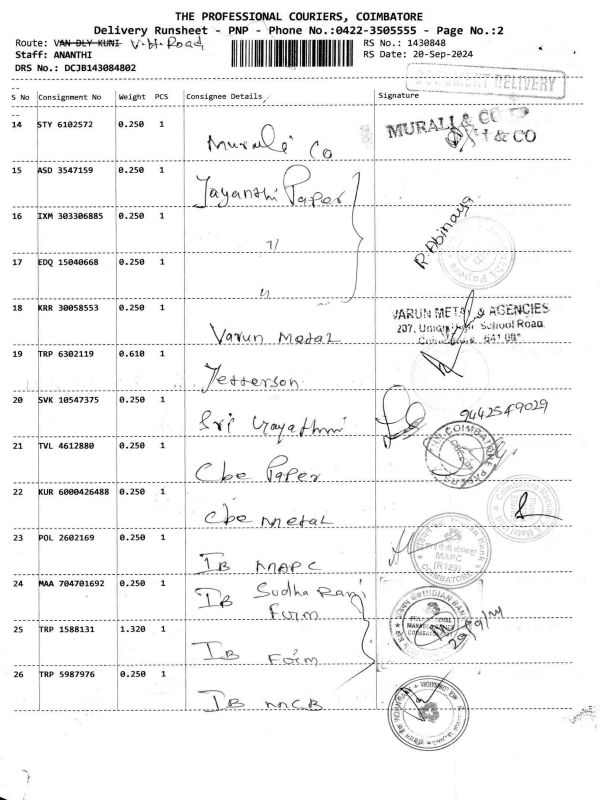 THE PROFESSIONAL COURIERS, COIMBATORE
Delivery Runsheet - PNP - Phone No.:0422-3505555 - Page No.:2
Route: VAN DLY KUNI V.H.Road
RS No.: 1430848
Staff: ANANTHI
RS Date: 20-Sep-2024
DRS No.: DCJB143084802
DOCUMENT DELIVERY
S No Consignment No Weight PCS Consignee Details Signature
14 STY 6102572 0.250 1 Murali Co MURALI & CO
& CO
15 ASD 3547159 0.250 1 Jayanthi Paper
16 IXM 303306885 0.250 1 R.Abinaya
17 EDQ 15040668 0.250 1
18 KRR 30058553 0.250 1 Varun Metal VARUN METAL & AGENCIES
207, Union High School Road,
Coimbatore
19 TRP 6302119 0.610 1 Jefferson
20 SVK 10547375 0.250 1 Sri Gayathri 9442549029
21 TVL 4612880 0.250 1 Cbe Paper COIMBATORE PAPERS
22 KUR 6000426488 0.250 1 Cbe Metal
23 POL 2602169 0.250 1 IB MAPC Indian Bank
MAPC
(R129)
COIMBATORE
24 MAA 704701692 0.250 1 IB Sudha Rani
Form INDIAN BANK
25 TRP 1588131 1.320 1 IB Form
26 TRP 5987976 0.250 1 IB MCB